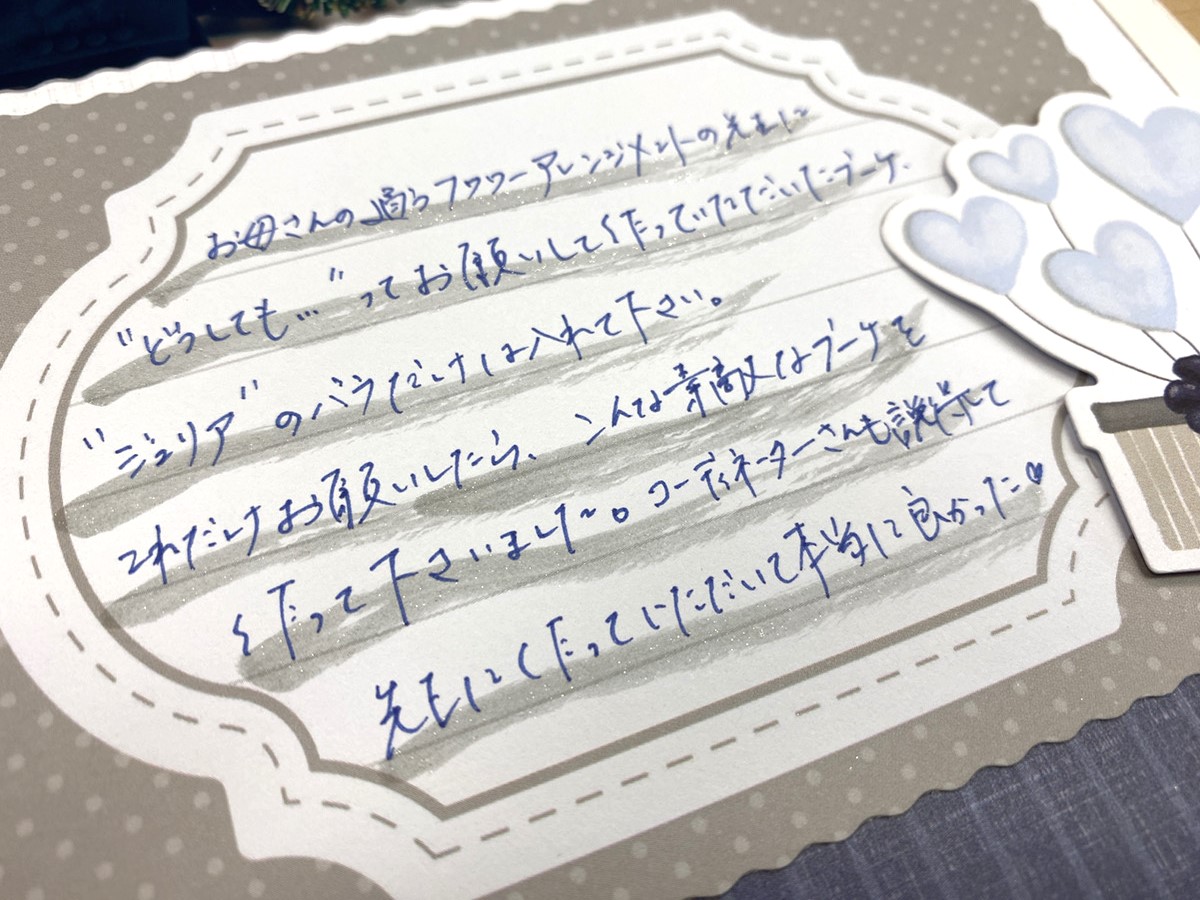 お母さんの通うフラワーアレンジメントの先生に
"どうしても…"ってお願いして作っていただいたブーケ.
"ジュリア"のバラだけは入れて下さい。
これだけお願いしたら、こんな素敵なブーケを
作って下さいました〜。コーディネーターさんも説得して
先生に作っていただいて本当に良かった♥